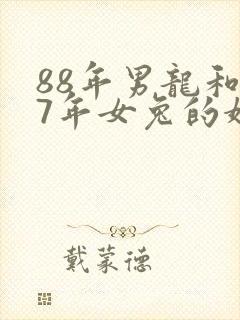 88年男龍和
7年女兔的
戴蒙德